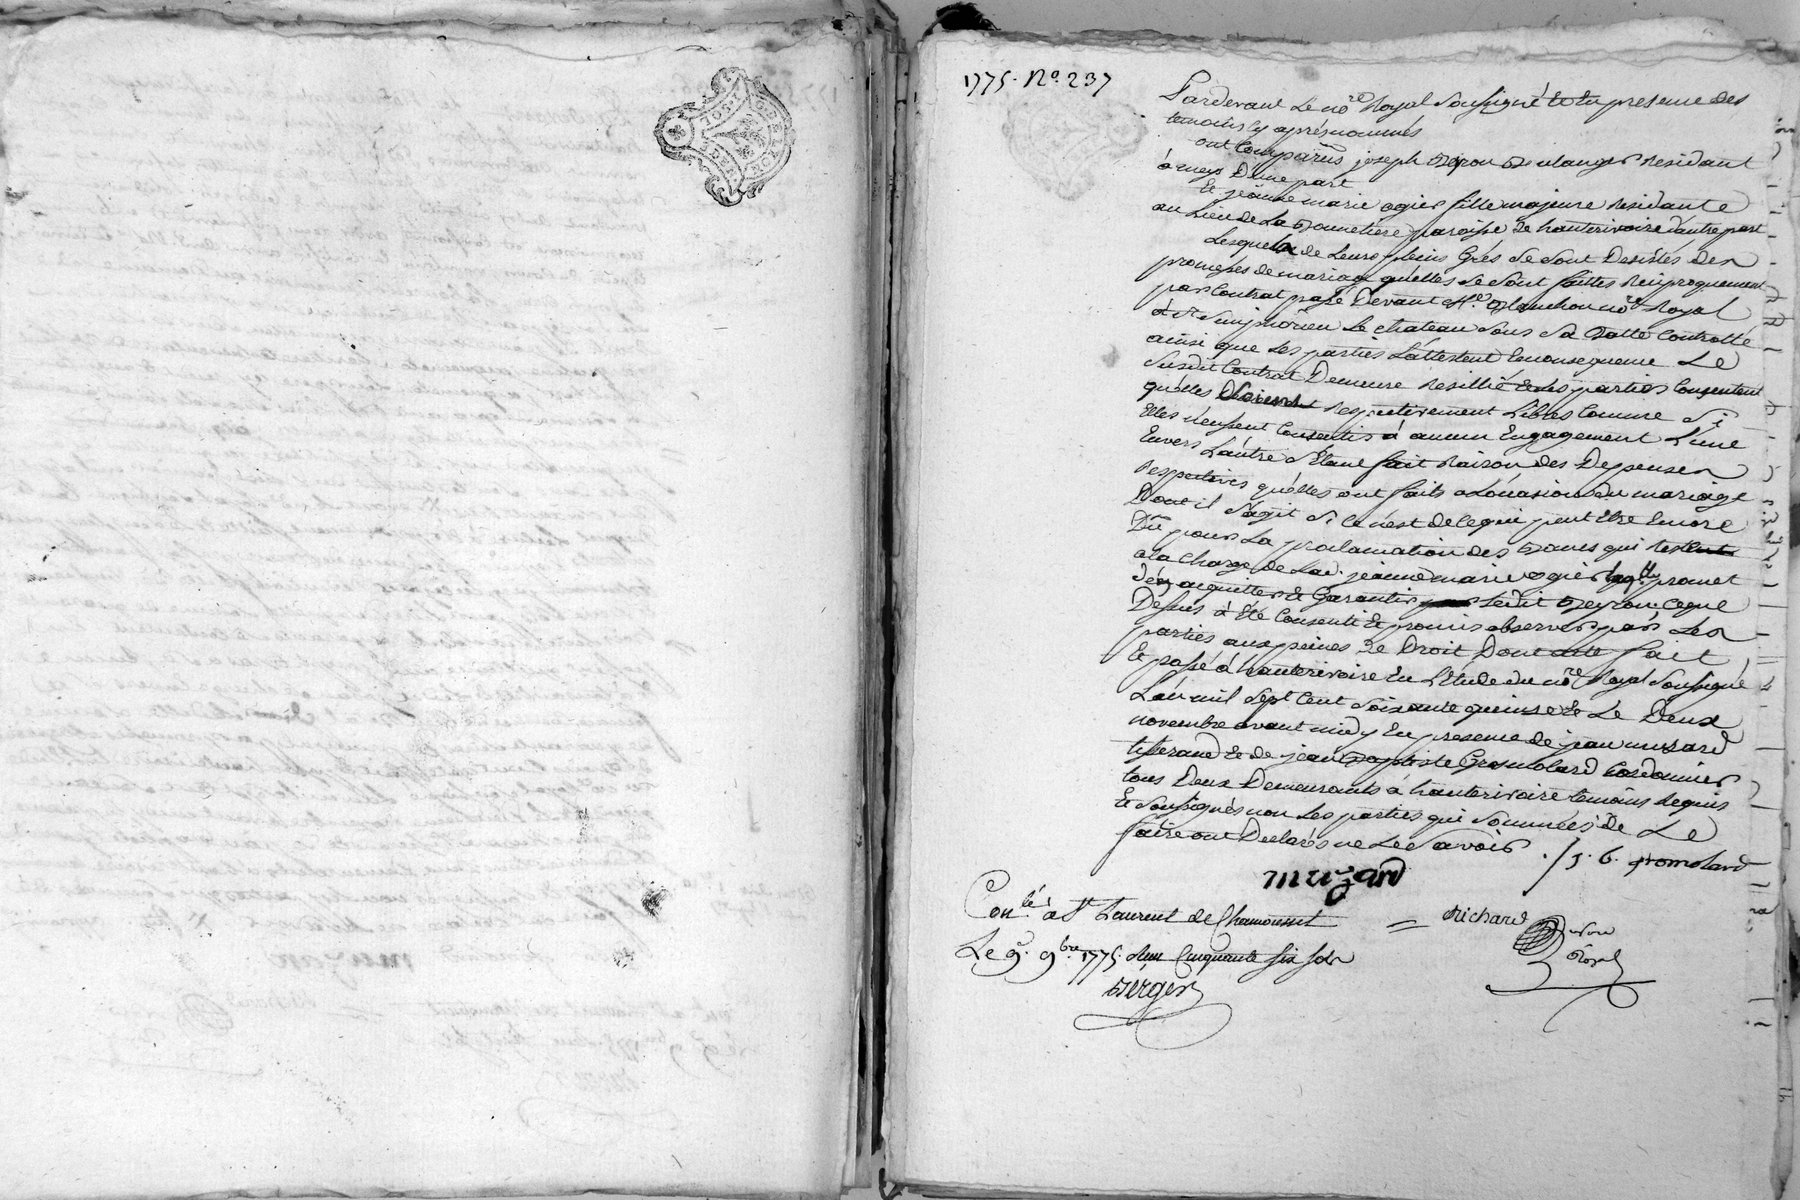 1775. No. 237
Pardevant Le nore Royal Soussigné Et En presence des
temoins cy aprés nommés
ont Comparûs joseph Boulanger Residant
à meys D'une part
Et jeanne marie ogier fille majeure Residante
au Lieu de La Bonnetiere paroisse de hauterivoire d'autre part
Lesquelx de Leurs pleins Grés Se Sont Desistés des
promesses de mariage qu'elles Se Sont faittes Reciproquement
par Contrat passé Devant Me Blanchon nore Royal
à St Simphorien Le chateau Sous Sa Datte Controllé
ainsi que Les parties L'attestent Enconsequence Le
Susdit Contrat Demeure Resillié Et Les parties Consentent
qu'elles Respectivement Libres Comme Si
Elles n'eussent Consentis à aucun Engagement L'une
Envers L'autre S'Etant fait Raison des Depenses
Respectives qu'elles ont faits a L'ocasion du mariage
Dont il S'agit Si Ce n'est de Ce qui peut Etre Encore
Dû pour La proclamation des Bancs qui
a la Charge de Lad. jeanne marie ogier promet
acquitter Et Garantir Ledit Ce que
Dessus à Eté Consenti Et promis observer par Les
parties aux peines de Droit Dont acte fait
Et passé à hauterivoire En L'Etude du nore Royal Soussigné
L'an mil Sept Cent Soixante quinze Et Le Deux
novembre avant midy En presence de jean muzard
tisserand Et de jean Baptiste Gromolard Cordonnier
tous Deux Demeurants à hauterivoire temoins Requis
Et Soussignés non Les parties qui Sommées de Le
faire ont Declarés ne Le Savoir . / J. b. gromolard
muzard
Conlé à St Laurent de Chamousset = Richard
Le 9. 9bre 1775. Reçu Cinquante Six Sols nore
Royal
Berger